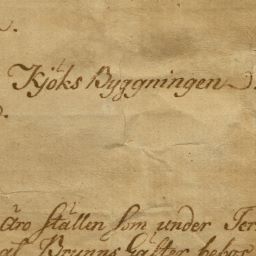 Kjöks Byggningen
äro ställen som under
Brunns Gäster